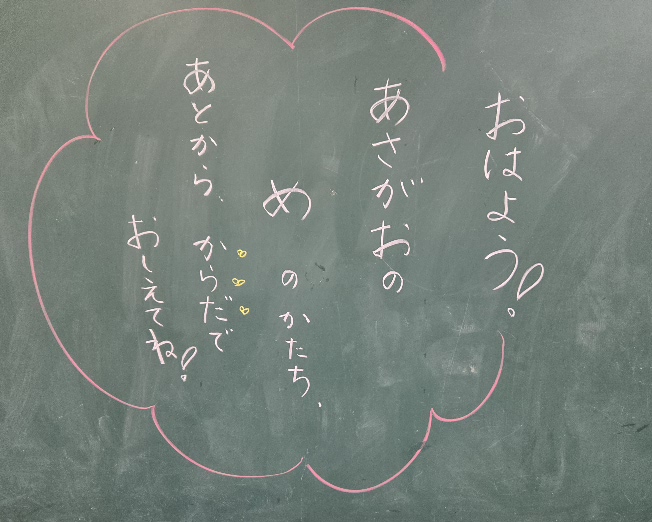 おはよう!
あさがおの
めのかたち、
あとから、からだで
おしえてね!